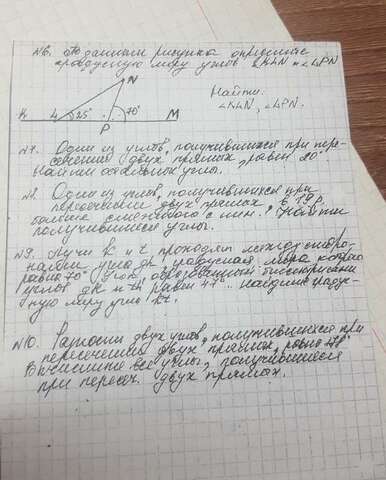 №6. По данным рисунка определите
градусную меру углов ∠KLN и ∠LPN
N
K L 25° 70° M
P
Найти.
∠KLN, ∠LPN.
№7. Один из углов, получившихся при пере-
сечении двух прямых, равен 20°.
Найти остальные углы.
№8. Один из углов, получившихся при
пересечении двух прямых в 19 р.
больше смежного с ним. Найти
получившиеся углы.
№9. Лучи k и t проходят между сторо-
нами угла градусная мера которого
равна 70° Угол, образованный биссектрисами
углов и равен 47° найдите граду-
сную меру угла kt.
№10. Разность двух углов, получившихся при
пересечении двух прямых, равна
Вычислите все углы, получившиеся
при пересеч. двух прямых.